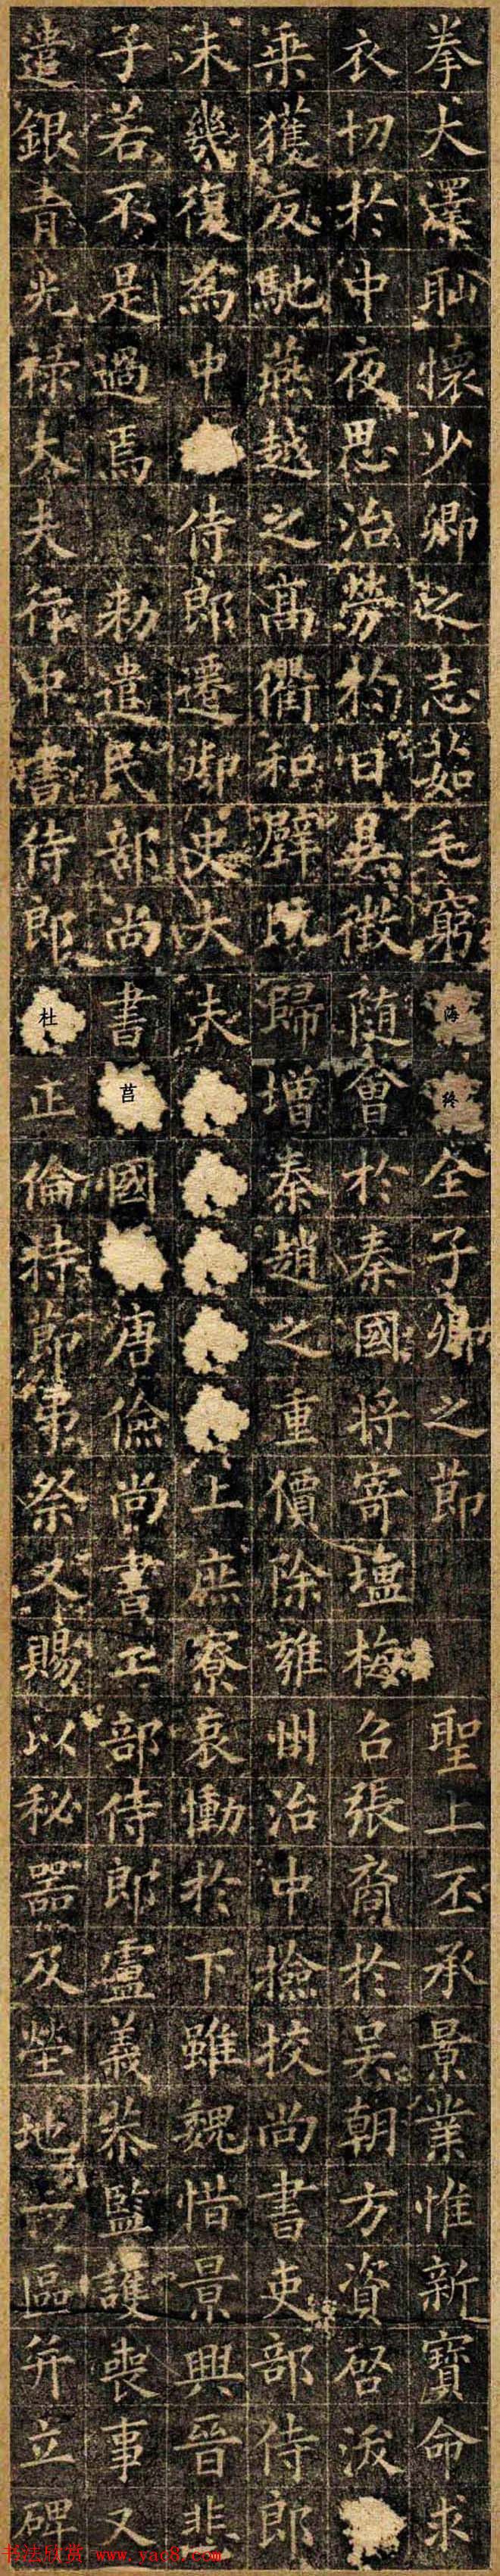 拳大澤耻懷少卿之志茹毛窮海終全子卿之節聖上丕承景業惟新寶命求
衣切於中夜思治勞於日昃徵隨會於秦國將寄塩梅召張裔於吳朝方資啓沃
乘獲反馳燕越之高衢和璧既歸增秦趙之重價除雍州治中撿挍尚書吏部侍郎
未幾復為中侍郎遷御史大夫上庶寮哀慟於下雖魏惜景興晉悲
子若不是過焉勑遣民部尚書莒國唐儉尚書工部侍郎盧義恭監護喪事又
遣銀青光禄大夫行中書侍郎杜正倫持節弔祭又賜以秘器及塋地一區并立碑
书法欣赏 www.yac8.com